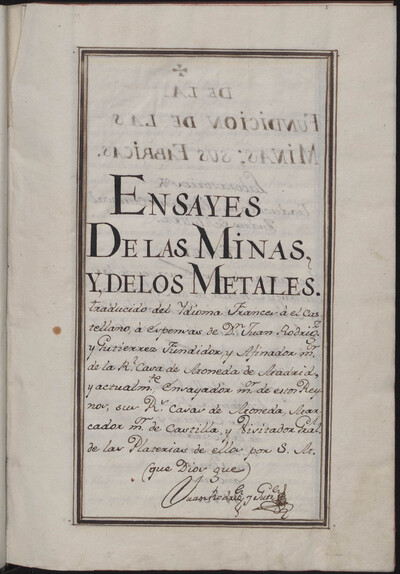 ENSAYES
DE LAS MINAS,
Y, DE LOS METALES.
traducido del Ydioma Frances à el Cas
tellano, à espensas de Dn. Juan Rodrigz.
y Gutierrez Fundidor y Afinador mr.
de la Rl. Casa de Moneda de Madrid,
y actualmte. Ensayador mr. de estos Rey
nos, sus Rs. Casas de Moneda, Mar
cador mr. de Castilla, y Visitador Gral.
de las Platerias de ellos por S. M.
(que Dios gue)
Juan Rodrigz. y Gutz.